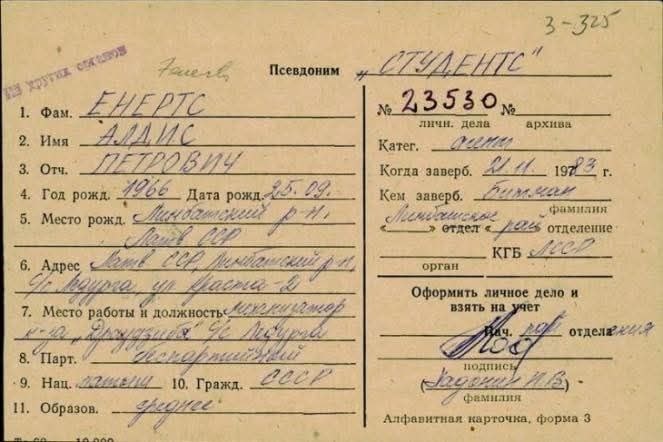 3-325
Псевдоним „СТУДЕНТС"
1. Фам. ЕНЕРТС
2. Имя АЛДИС
3. Отч. ПЕТРОВИЧ
4. Год рожд. 1966 Дата рожд. 25.09.
5. Место рожд. Лимбажский р-н,
Латв ССР
6. Адрес Латв ССР, Лимбажский р-н,
с/с Ледурга, ул Краста-2
7. Место работы и должность механизатор
к-за „Драудзиба" с/с Ледурга
8. Парт. беспартийный
9. Нац. латыш 10. Гражд. СССР
11. Образов. среднее
№ 23530 №
личн. дела архива
Катег. агент
Когда заверб. 21.11 1983 г.
Кем заверб. Битман
фамилия
Лимбажское
« » отдел « рай отделение
КГБ ЛССР
орган
Оформить личное дело и
взять на учет
Нач. рай отделения
подпись
фамилия
Алфавитная карточка, форма 3